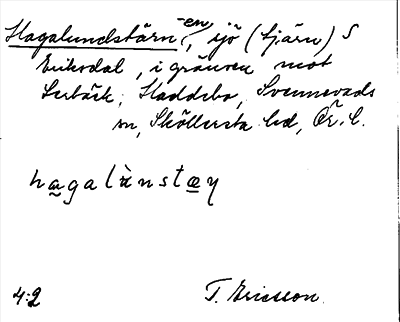 Hagalundstärn -en, sjö (tjärn) S
Eriksdal, i gränsen mot
Serbäck, Haddebo, Svennevads
sn, Sköllersta hd, Ör. l.
hagalùnstæɳ
4:2
T. Ericsson